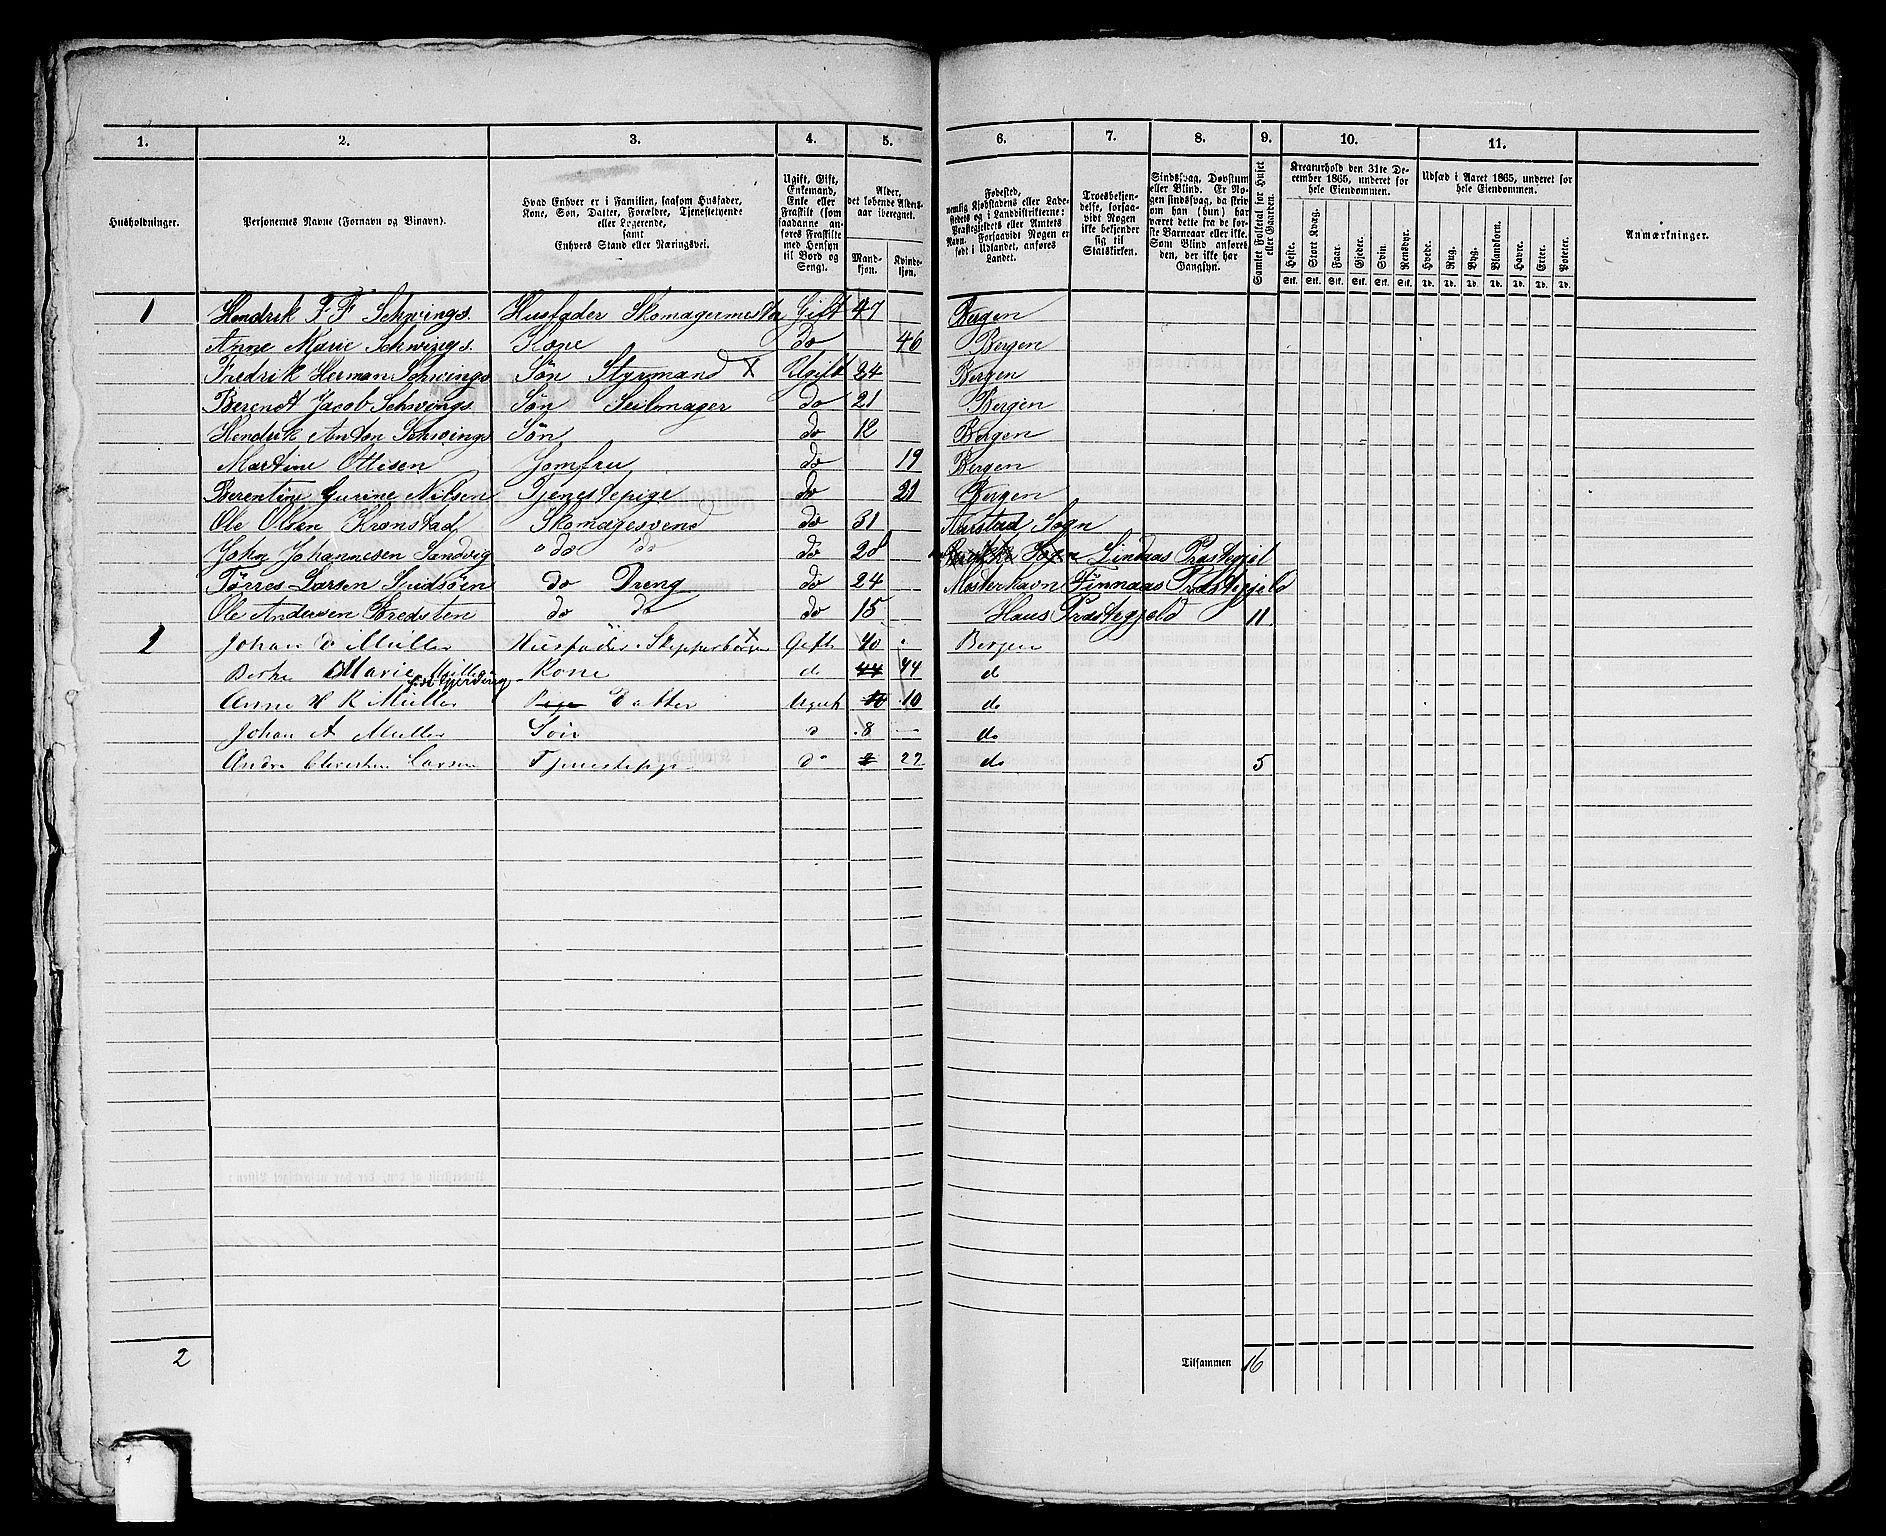 1. 2. 3. 4. 5. 6. 7. 8. 9. 10. 11.
Husholdninger.
Personernes Navne (Fornavn og Binavn).
Hvad Enhver er i Familien, saasom Husfader,
Kone, Søn, Datter, Forældre, Tjenestetyende
eller Logerende,
samt
Enhvers Stand eller Næringsvei.
Ugift, Gift,
Enkemand,
Enke eller
Fraskilt (som
saadanne an-
føres Fraskilte
med Hensyn
til Bord og
Seng).
Alder,
det løbende Alders-
aar iberegnet.
Mand-
kjøn.
Kvinde-
kjøn.
Fødested,
nemlig Kjøbstadens eller Lade-
stedets og i Landdistrikterne:
Præstegjeldets eller Amtets
Navn. Forsaavidt Nogen er
født i Udlandet, anføres
Landet.
Troesbekjen-
delse, forsaa-
vidt Nogen
ikke bekjender
sig til
Statskirken.
Sindssvag, Døvstum
eller Blind. Er No-
gen sindssvag, da skriv
om han (hun) har
været dette fra de før-
ste Barneaar eller ikke.
Som Blind anføres
den, der ikke har
Gangsyn.
Samlet Folketal for Huset
eller Gaarden.
Kreaturhold den 31te De-
cember 1865, underet for
hele Eiendommen.
Heste. Stort Kvæg. Faar. Gjeder. Svin. Rensdyr.
Stk. Stk. Stk. Stk. Stk. Stk.
Udsæd i Aaret 1865, underet for
hele Eiendommen.
Hvede. Rug. Byg. Blandkorn. Havre. Erter. Poteter.
Td. Td. Td. Td. Td. Td. Td.
Anmærkninger.
1 Hendrik F. F. Schwings. Husfader Skomagermester Gift 47 Bergen
Anne Marie Schwings. Kone do 46 Bergen
Fredrik Herman Schwings Søn Styrmand X Ugift 24 Bergen
Berendt Jacob Schwings. Søn Seilmager do 21 Bergen
Hendrik Anton Schwings Søn do 12 Bergen
Martine Ottisen Jomfru do 19 Bergen
Berentine Gurine Nilsen Tjenestepige do 21 Bergen
Ole Olsen Kronstad Skomagesvend do 31 Aarstad Sogn
John Johannesen Sandvig do do do 28 Sogn Lindaas Præstegjel
Tøeres Larsen do Dreng do 24 Mosterhavn Finnaas Præstegjeld
Ole Andersen Bredsten do do do 15 Haus Præstegjeld 11
2 Johan Müller Husfader Skipperborger X Gift 40 Bergen
Berthe Marie Müller Kone d 44 44 d
født Gjerding
Anne H K Müller Pige Datter Ugift 10 10 do
Johan A Müller Søn d 8 do
Andrea Christine Larsen Tjenestepige do 2 22 do 5
2
Tilsammen 16